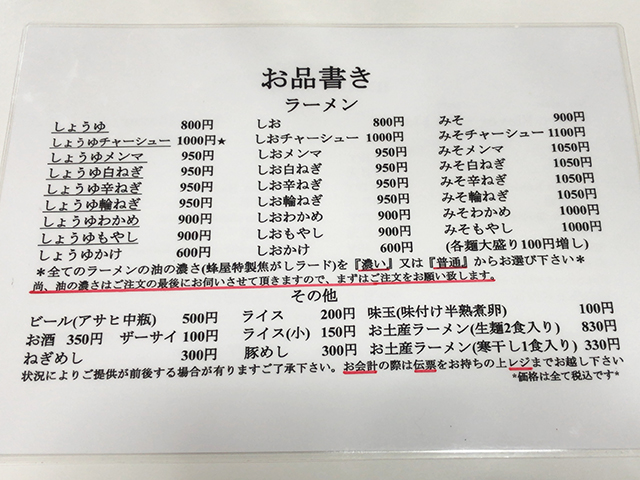 お品書き
ラーメン
しょうゆ 800円 しお 800円 みそ 900円
しょうゆチャーシュー 1000円★ しおチャーシュー 1000円 みそチャーシュー 1100円
しょうゆメンマ 950円 しおメンマ 950円 みそメンマ 1050円
しょうゆ白ねぎ 950円 しお白ねぎ 950円 みそ白ねぎ 1050円
しょうゆ辛ねぎ 950円 しお辛ねぎ 950円 みそ辛ねぎ 1050円
しょうゆ輪ねぎ 950円 しお輪ねぎ 950円 みそ輪ねぎ 1050円
しょうゆわかめ 900円 しおわかめ 900円 みそわかめ 1000円
しょうゆもやし 900円 しおもやし 900円 みそもやし 1000円
しょうゆかけ 600円 しおかけ 600円 (各麺大盛り100円増し)
＊全てのラーメンの油の濃さ(蜂屋特製焦がしラード)を『濃い』又は『普通』からお選び下さい＊
尚、油の濃さはご注文の最後にお伺いさせて頂きますので、まずはご注文をお願い致します。
その他
ビール(アサヒ中瓶) 500円 ライス 200円 味玉(味付け半熟煮卵) 100円
お酒 350円 ザーサイ 100円 ライス(小) 150円 お土産ラーメン(生麺2食入り) 830円
ねぎめし 300円 豚めし 300円 お土産ラーメン(寒干し1食入り) 330円
状況によりご提供が前後する場合が有りますご了承下さい。お会計の際は伝票をお持ちの上レジまでお越し下さい
*価格は全て税込です*